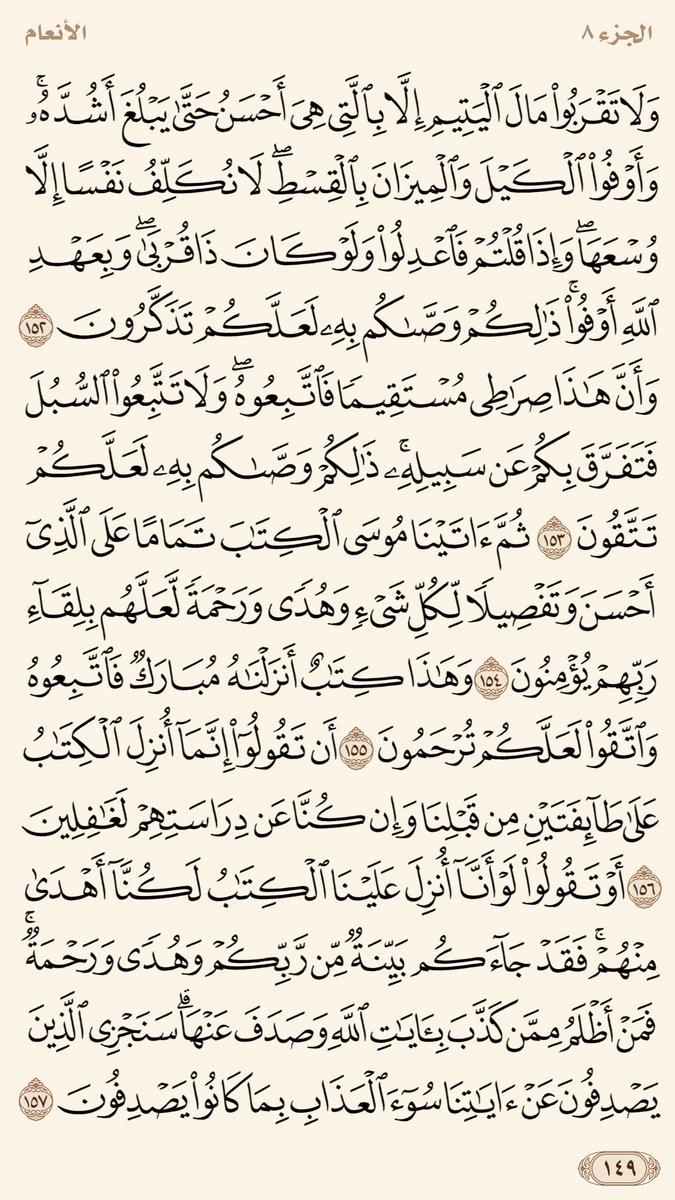 الجزء ٨
الأنعام
وَلَا تَقْرَبُوا۟ مَالَ ٱلْيَتِيمِ إِلَّا بِٱلَّتِى هِىَ أَحْسَنُ حَتَّىٰ يَبْلُغَ أَشُدَّهُۥۚ
وَأَوْفُوا۟ ٱلْكَيْلَ وَٱلْمِيزَانَ بِٱلْقِسْطِۖ لَا نُكَلِّفُ نَفْسًا إِلَّا
وُسْعَهَاۖ وَإِذَا قُلْتُمْ فَٱعْدِلُوا۟ وَلَوْ كَانَ ذَا قُرْبَىٰۖ وَبِعَهْدِ
ٱللَّهِ أَوْفُوا۟ۚ ذَٰلِكُمْ وَصَّىٰكُم بِهِۦ لَعَلَّكُمْ تَذَكَّرُونَ ١٥٢
وَأَنَّ هَٰذَا صِرَٰطِى مُسْتَقِيمًا فَٱتَّبِعُوهُۖ وَلَا تَتَّبِعُوا۟ ٱلسُّبُلَ
فَتَفَرَّقَ بِكُمْ عَن سَبِيلِهِۦۚ ذَٰلِكُمْ وَصَّىٰكُم بِهِۦ لَعَلَّكُمْ
تَتَّقُونَ ١٥٣ ثُمَّ ءَاتَيْنَا مُوسَى ٱلْكِتَٰبَ تَمَامًا عَلَى ٱلَّذِىٓ
أَحْسَنَ وَتَفْصِيلًا لِّكُلِّ شَىْءٍ وَهُدًى وَرَحْمَةً لَّعَلَّهُم بِلِقَآءِ
رَبِّهِمْ يُؤْمِنُونَ ١٥٤ وَهَٰذَا كِتَٰبٌ أَنزَلْنَٰهُ مُبَارَكٌ فَٱتَّبِعُوهُ
وَٱتَّقُوا۟ لَعَلَّكُمْ تُرْحَمُونَ ١٥٥ أَن تَقُولُوٓا۟ إِنَّمَآ أُنزِلَ ٱلْكِتَٰبُ
عَلَىٰ طَآئِفَتَيْنِ مِن قَبْلِنَا وَإِن كُنَّا عَن دِرَاسَتِهِمْ لَغَٰفِلِينَ
١٥٦ أَوْ تَقُولُوا۟ لَوْ أَنَّآ أُنزِلَ عَلَيْنَا ٱلْكِتَٰبُ لَكُنَّآ أَهْدَىٰ
مِنْهُمْۚ فَقَدْ جَآءَكُم بَيِّنَةٌ مِّن رَّبِّكُمْ وَهُدًى وَرَحْمَةٌۚ
فَمَنْ أَظْلَمُ مِمَّن كَذَّبَ بِـَٔايَٰتِ ٱللَّهِ وَصَدَفَ عَنْهَاۗ سَنَجْزِى ٱلَّذِينَ
يَصْدِفُونَ عَنْ ءَايَٰتِنَا سُوٓءَ ٱلْعَذَابِ بِمَا كَانُوا۟ يَصْدِفُونَ ١٥٧
١٤٩